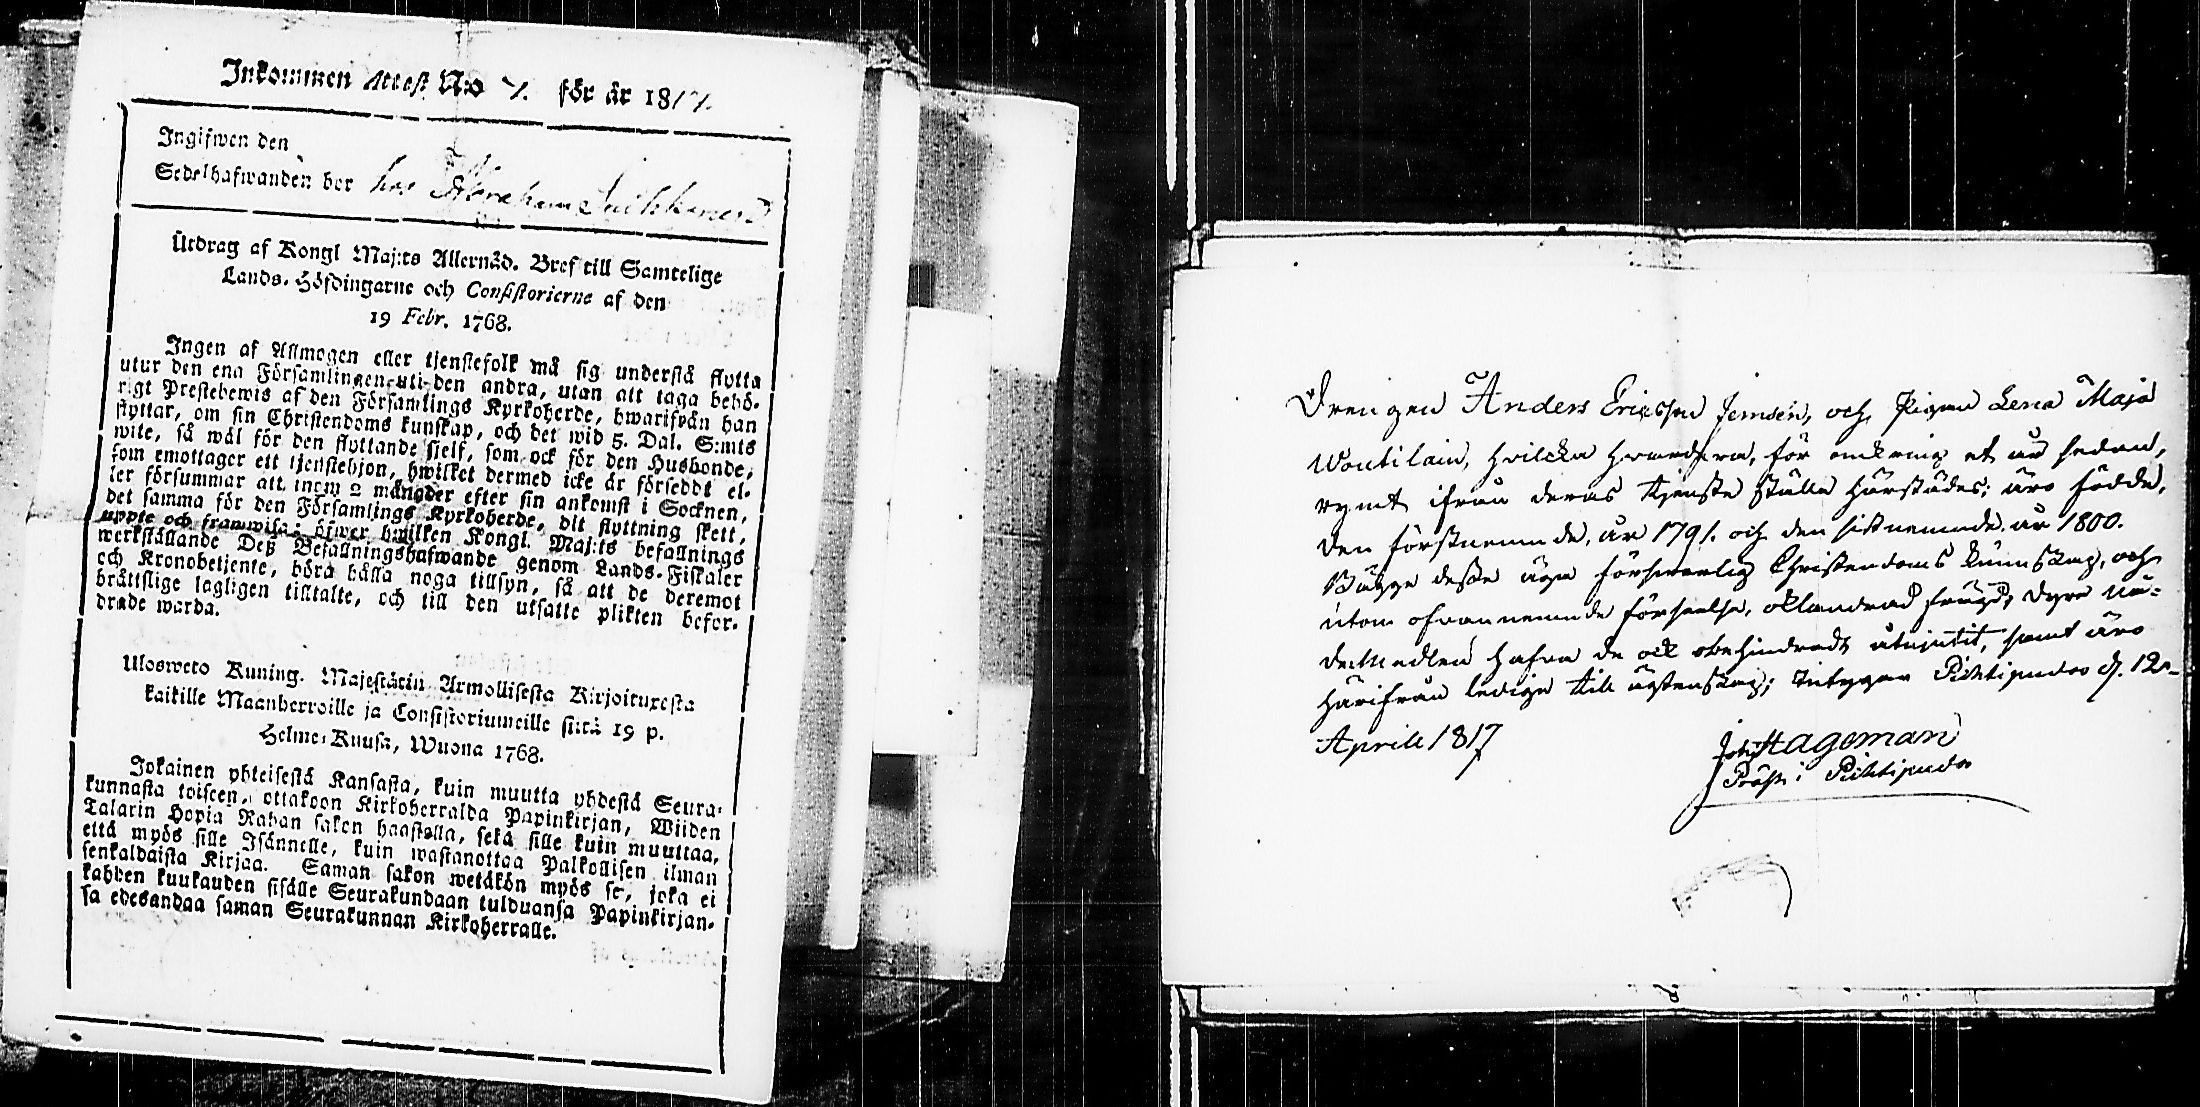 Inkommen Attest N:o 7. för år 1817.
Ingifwen den
Sedelhafwanden bor hos Abraham
Utdrag af Kongl Maj:ts Allernåd. Bref till Samtelige
Lands-Höfdingarne och Consistorierne af den
19 Febr. 1768.
Ingen af Allmogen eller tjenstefolk må sig understå flytta
utur den ena Församlingen uti den andra, utan att taga behö-
rigt Prestebewis af den Församlings Kyrkoherde, hwarifrån han
flyttar, om sin Christendoms kunskap, och det wid 5. Dal. S:mts
wite, så wäl för den flyttande sielf, som ock för den Husbonde,
som emottager ett tjenstehjon, hwilket dermed icke är försedt el-
ler försummar att inom 2 månader efter sin ankomst i Socknen,
det samma för den Församlings Kyrkoherde, dit flyttning skett,
uppte och framwisa; öfwer hwilken Kongl. Maj:ts befallnings
werkställande Deß Befallningshafwande genom Lands-Fiskaler
och Kronobetjente, böra hålla noga tillsyn, så att de deremot
bråttslige lagligen tilltalte, och till den utsatte plikten befor-
drade warda.
Ulosweto Kuning. Majestätin Armollisesta Kirjoituxesta
kaikille Maanherroille ja Consistoriumeille siitä 19 p.
Helme-Kuusa, Wuona 1768.
Jokainen yhteisestä Kansasta, kuin muutta yhdestä Seura-
kunnasta toiseen, ottakoon Kirkoherralda Papinkirjan, Wiiden
Talarin Hopia Rahan sakon haastolla, sekä sille kuin muuttaa,
että myös sille Isännelle, kuin wastanottaa Palkollisen ilman
senkaldaista Kirjaa. Saman sakon wetäkön myös se, joka ei
kahden kuukauden sisälle Seurakundaan tulduansa Papinkirjan-
sa edesandaa saman Seurakunnan Kirkoherralle.
Drengen Anders Ericsson Jemsén, och Pigan Lena Maja
Woutilain, hvilcka hvardera, för omkring et år sedan,
rymt ifrån deras tjenste ställe härstädes; äro födde,
den förstnemnde, år 1791. och den sistnemnde år 1800.
Bägge desse äga försvarlig Christendoms kunnskap, och
utom ofvannemnde förseelse, oklandrad frägd, dyre Nå-
demedlen hafva de ock obehindradt åtnjutit, samt äro
härifrån ledige till ägtenskap; Intygar Pihtipudas d. 12
Aprill 1817
Joh Hageman
Präst i Pihtipudas